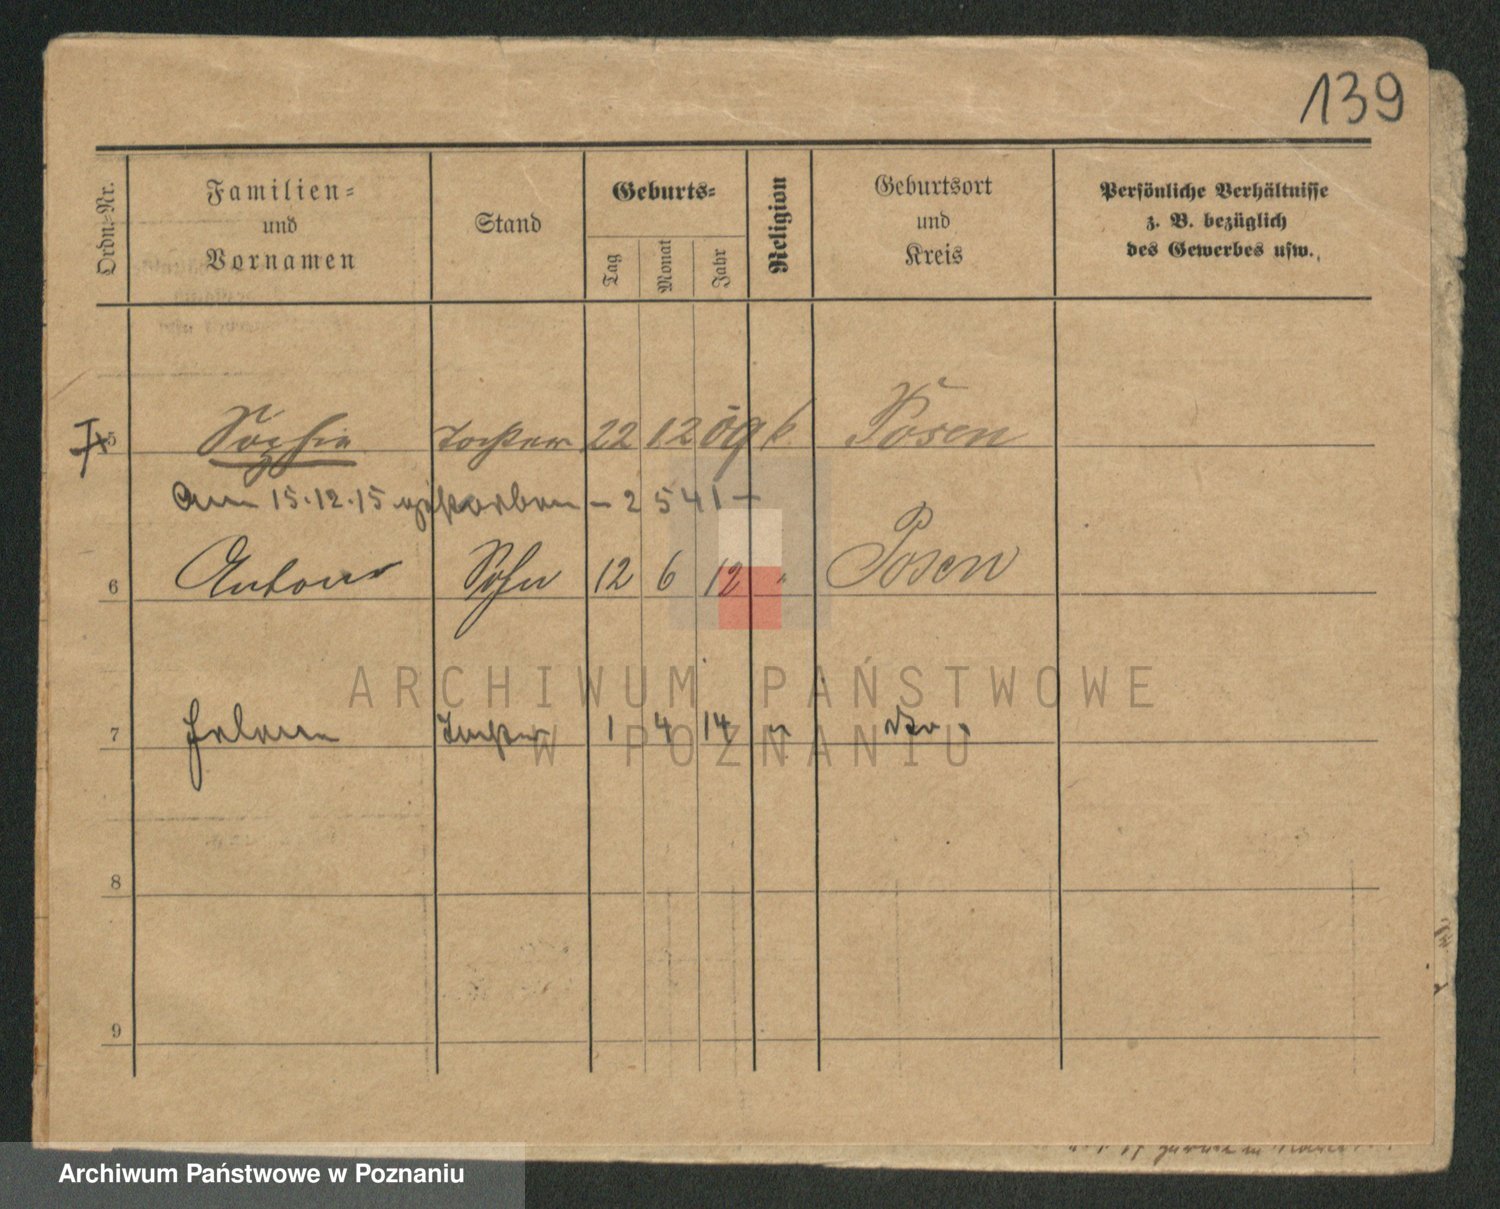 139
Ordn.-Nr.
Familien-
und
Vornamen
Stand
Geburts-
Tag
Monat
Jahr
Religion
Geburtsort
und
Kreis
Persönliche Verhältnisse
z. B. bezüglich
des Gewerbes usw.
5 Sophie Tochter 22 12 09 k Posen
Am 15.12.15 gestorben – 2541 –
6 Anton Sohn 12 6 12 " Posen
7 Helene Tochter 1 4 14 " dto
8
9
ARCHIWUM PAŃSTWOWE
W POZNANIU
Archiwum Państwowe w Poznaniu